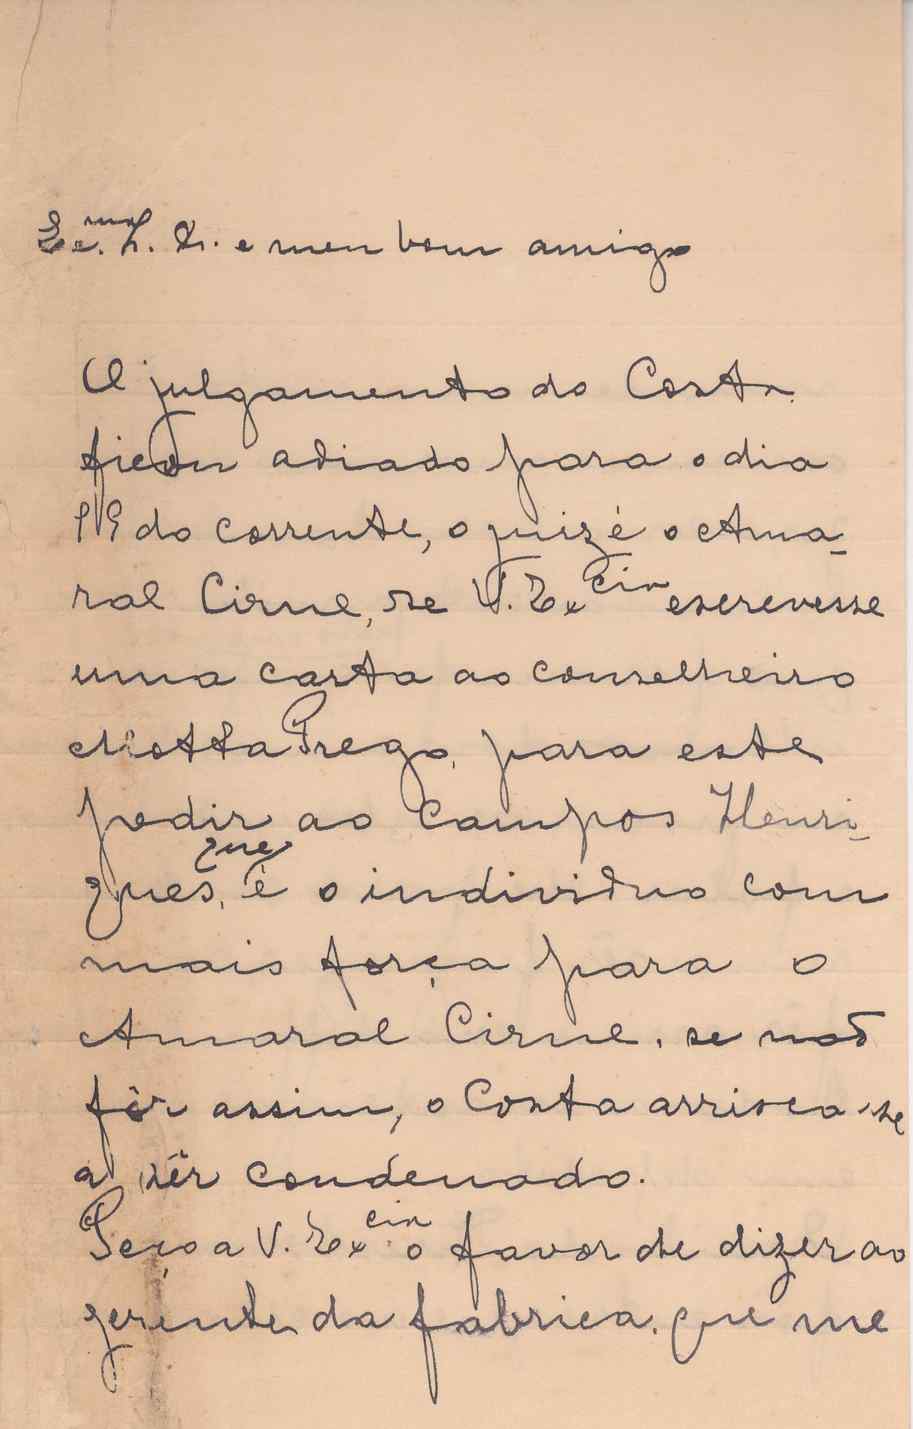 Exmo. Sr. Dr. e meu bom amigo
O julgamento do Costa
ficou adiado para o dia
19 do corrente, o juiz é o Ama-
ral Cirne, se V. Excia escrevesse
uma carta ao conselheiro
Motta Prego, para este
pedir ao Campos Henri-
ques, que é o individuo com
mais força para o
Amaral Cirne, se não
fôr assim, o Costa arrisca-se
a sêr condenado.
Peço a V. Excia o favor de dizer ao
gerente da fabrica, que me